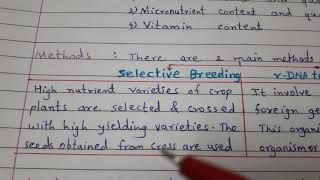 2) Micronutrient content and qu
3) Vitamin content
Methods : There are 2 main methods
Selective Breeding
High nutrient varieties of crop
plants are selected & crossed
with high yielding varieties. The
seeds obtained from cross are used
r-DNA te
It involve
foreign ge
This organi
organism or